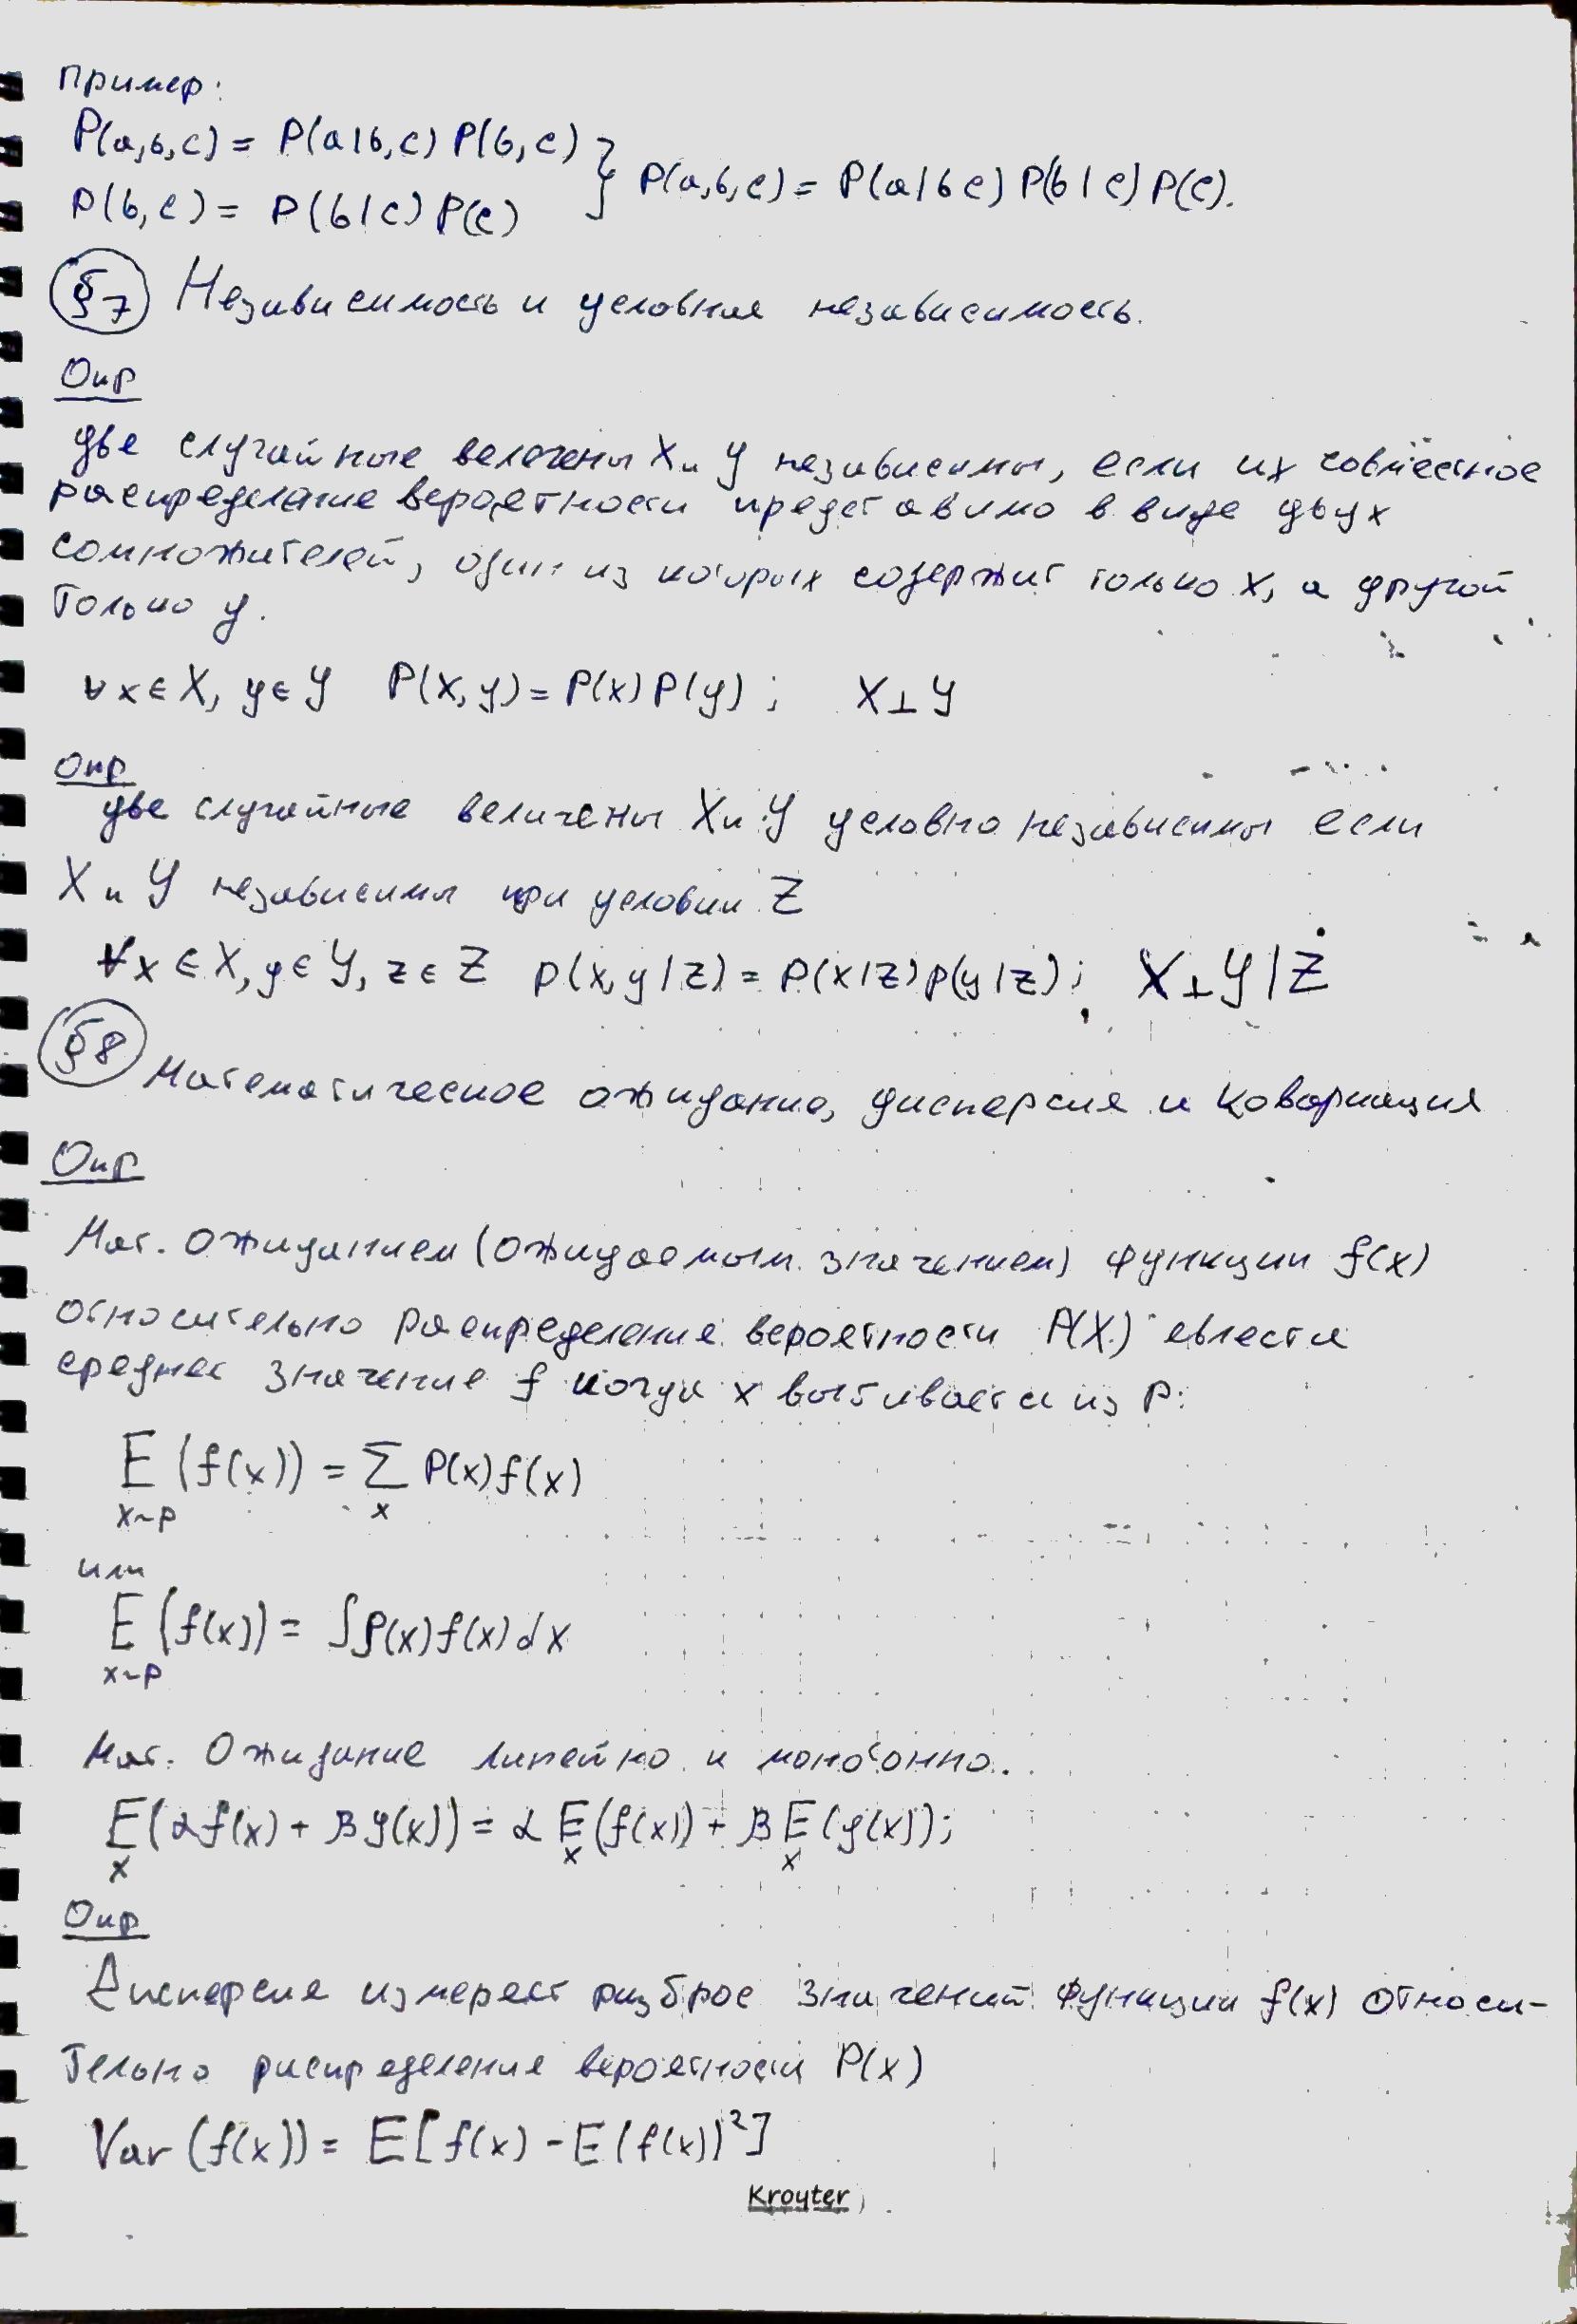 Пример:
P(a,b,c) = P(a|b,c) P(b,c)
P(b,c) = P(b|c) P(c)
} P(a,b,c) = P(a|bc) P(b|c) P(c).
§7 Независимость и условная независимость.
Опр
две случайные величены X и Y независимы, если их совместное
распределение вероятности представимо в виде двух
сомножителей, один из которых содержит только x, а другой
только y.
∀x∈X, y∈Y P(x,y) = P(x)P(y); X⊥Y
Опр
две случайные величены X и Y условно независимы если
X и Y независимы при условии Z
∀x∈X, y∈Y, z∈Z p(x,y|z) = p(x|z)p(y|z); X⊥Y|Z
§8 Математическое ожидание, дисперсия и ковариация
Опр
Мат. ожиданием (ожидаемым значением) функции f(x)
относительно распределения вероятности P(X) является
среднее значение f когда x выбивается из P:
E (f(x)) = ∑ P(x)f(x)
x~P x
или
E (f(x)) = ∫p(x)f(x)dx
x~p
Мат. Ожидание линейно и монотонно.
E(αf(x) + βg(x)) = α E(f(x)) + β E(g(x));
x x x
Опр
Дисперсия измеряет разброс значений функции f(x) относи-
тельно распределения вероятности P(x)
Var (f(x)) = E[f(x) - E(f(x))²]
Kroyter